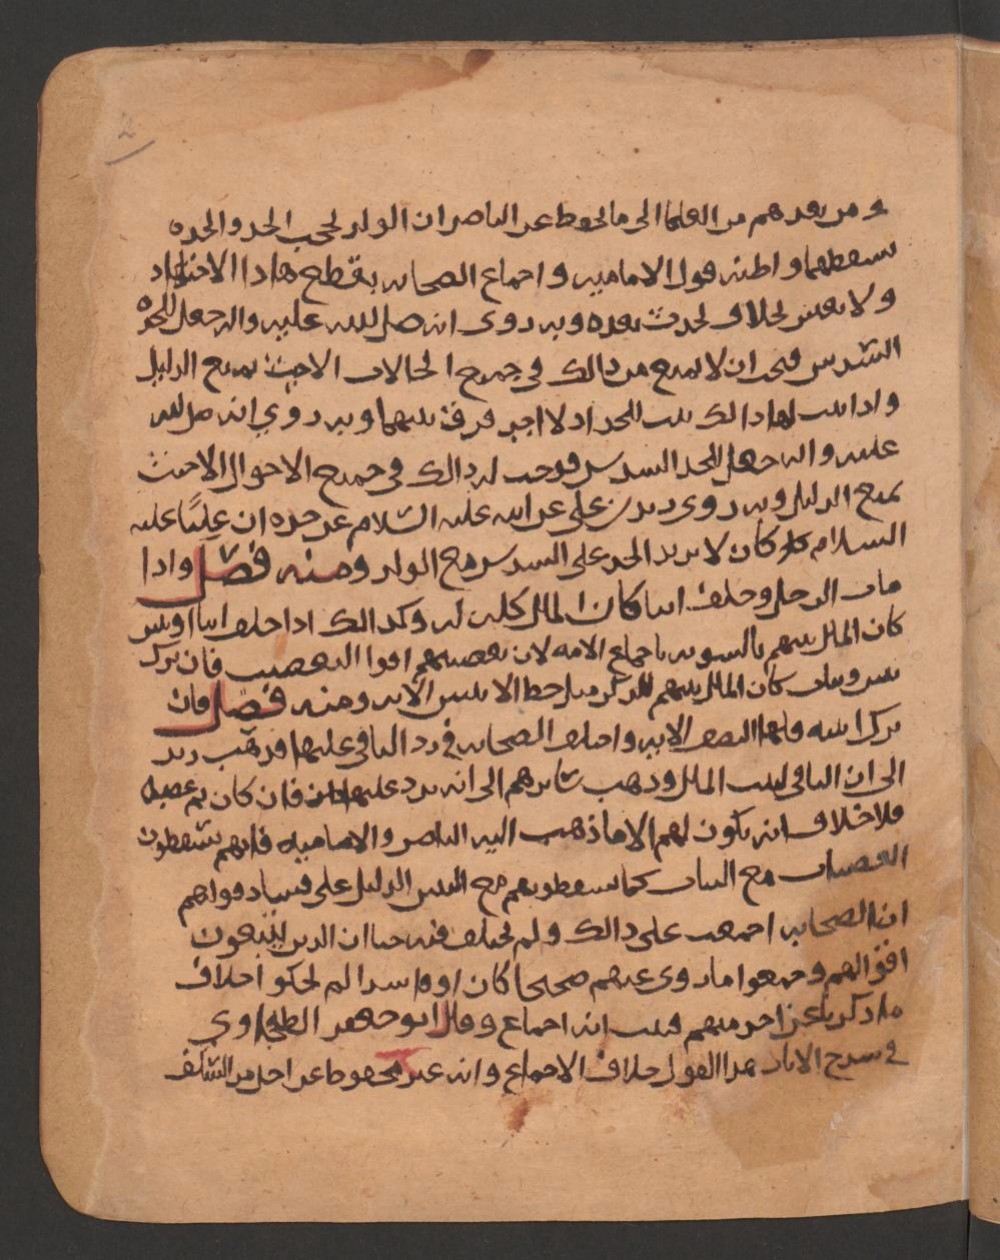 ومن بعدهم من العلما الى ما يحفظ عن الناصر ان الولد يحجب الجد والجده
يسقطهما واظنه قول الاماميه واجماع الصحابه يقطع هاذا الاجتهاد
ولا يعتبر بخلاف يحدث بعده وبه روى انه صلى الله عليه واله جعل للجده
السدس فيجب ان لا يمنع من ذالك في جميع الحالات الا حيث يمنع الدليل
واذا ثبت لها ذالك ثبت للجد اذ لا احد فرق بينهما وبه روي انه صلى الله
عليه واله جعل للجد السدس فوجب له ذالك في جميع الاحوال الا حيث
يمنع الدليل وبه روى زيد بن علي عن ابيه عليه السلام عن جده ان عليًا عليه
السلام كان لا يزيد الجد على السدس مع الولد ومنه فصل واذا
مات الرجل وخلف ابنا كان المال كله له وكذالك اذا خلف ابنا او بنين
كان المال بينهم بالسويه باجماع الامه لان تعصيبهم اقوا التعصيب فان ترك
بنين وبنات كان المال بينهم للذكر مثل حظ الانثيين الايه ومنه فصل فان
ترك ابنته فلها النصف الايه واختلف الصحابه في رد الباقي عليها فذهب زيد
الى ان الباقي لبيت المال وذهب سايرهم الى انه يرد عليها فان كان ثم عصبه
فلا خلاف انه يكون لهم الا ما ذهب اليه الناصر والاماميه فانهم يسقطون
العصبات مع البنات كما يسقطونهم مع البنين الدليل على فساد قولهم
ان الصحابه اجمعت على ذالك ولم يختلف فيه حتا ان الذين يتبعون
اقوالهم وجمعوا ما روى عنهم صحيحا كان او فاسدا لم يحكو اختلاف
ما ذكرنا عن احد منهم فثبت انه اجماع وقال ابو جعفر الطحاوي
في شرح الاثار هذا القول خلاف الاجماع وانه غير محفوظ عن احد من السلف